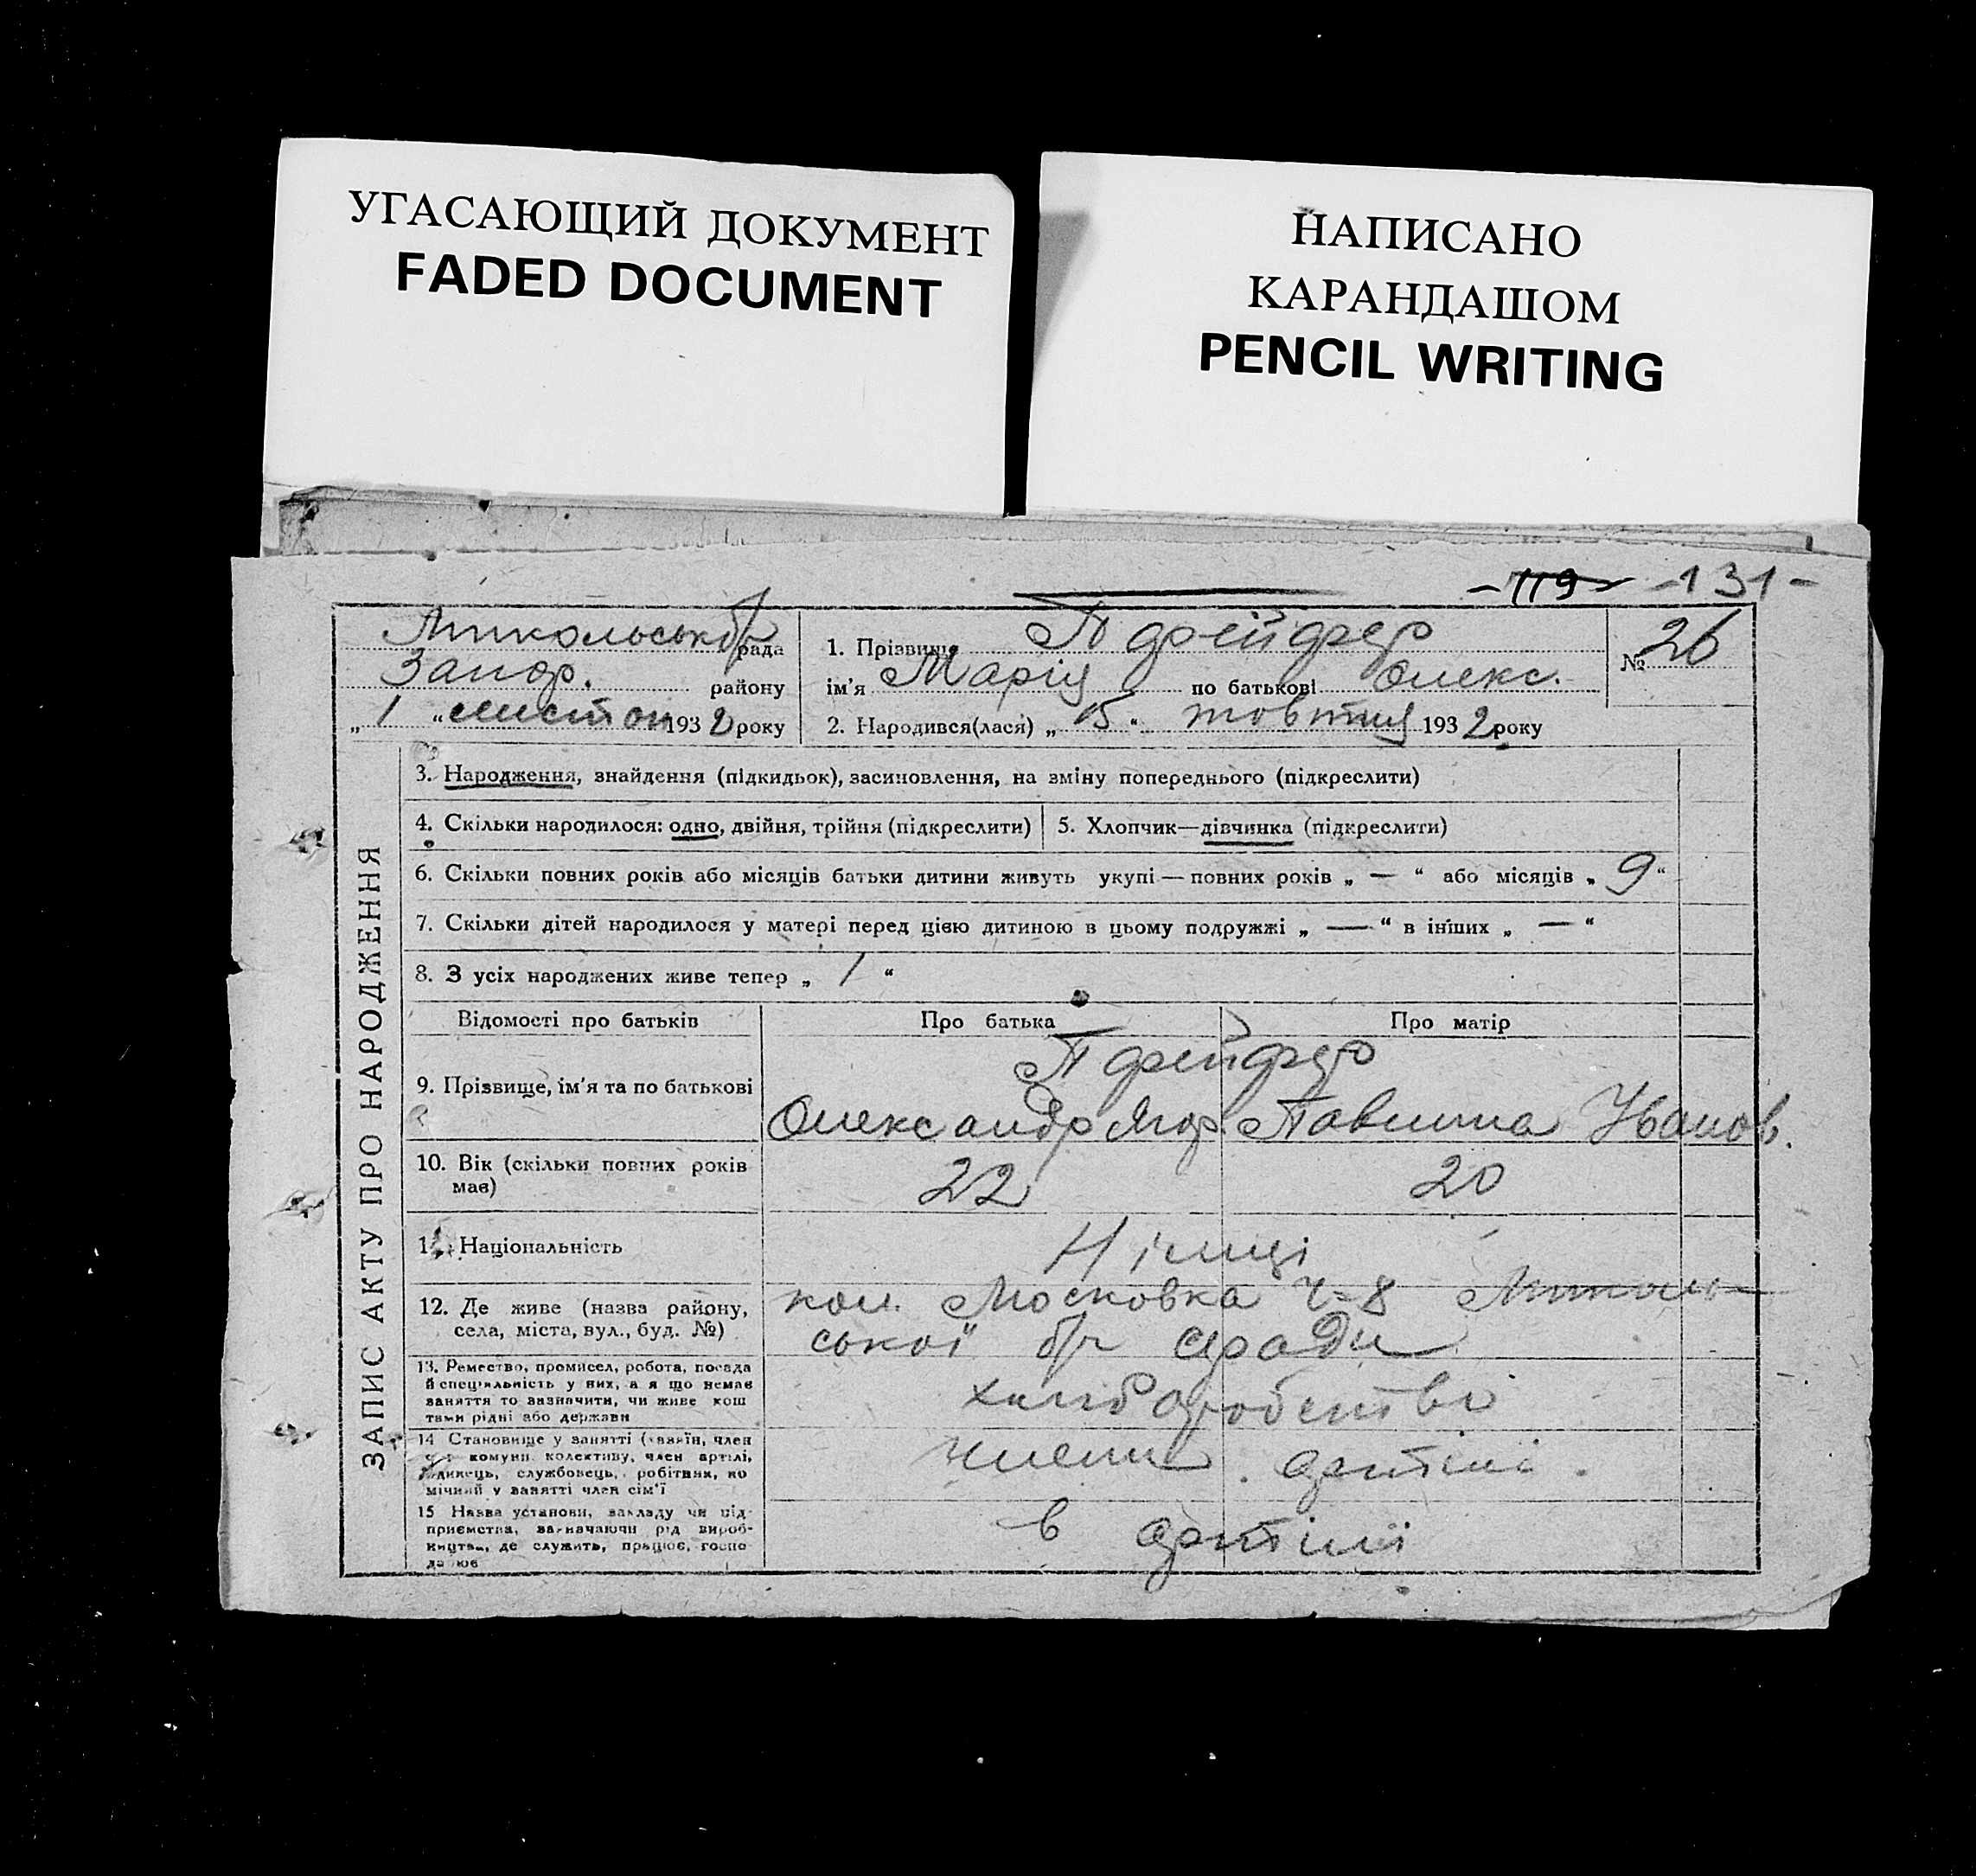 УГАСАЮЩИЙ ДОКУМЕНТ
FADED DOCUMENT
НАПИСАНО
КАРАНДАШОМ
PENCIL WRITING
-119- -131-
Микольська б/р рада
Запор. району
„ 1 “ листоп 1932 року
1. Прізвище Пфейфер
ім'я Марія по батькові Олекс.
№ 26
2. Народився(лася) „ 15 “ жовтня 1932 року
ЗАПИС АКТУ ПРО НАРОДЖЕННЯ
3. Народження, знайдення (підкидьок), засиновлення, на зміну попереднього (підкреслити)
4. Скільки народилося: одно, двійня, трійня (підкреслити)
5. Хлопчик—дівчинка (підкреслити)
6. Скільки повних років або місяців батьки дитини живуть укупі — повних років „ — “ або місяців „ 9 “
7. Скільки дітей народилося у матері перед цією дитиною в цьому подружжі „ — “ в інших „ — “
8. З усіх народжених живе тепер „ 1 “
Відомості про батьків Про батька Про матір
9. Прізвище, ім'я та по батькові
Пфейфер
Олександр Ягор. Павлина Іванов.
10. Вік (скільки повних років має)
22 20
11. Національність
Німці
12. Де живе (назва району,
села, міста, вул., буд. №)
кол. Московка Ч-8 Миколь-
ської б/р с/ради
13. Ремество, промисел, робота, посада
й спеціяльність у них, а я що немає
заняття то зазначити, чи живе кош
тами рідні або держави
хліборобстві
14 Становище у занятті (хазяїн, член
комуни колективу, член артілі,
одинець, службовець, робітник, по
мічний у занятті член сім'ї
члени артілі.
15 Назва установи, закладу чи під-
приємства, зазначаючи рід вироб-
ництва, де служить, працює, госпо
дарює
в артілі